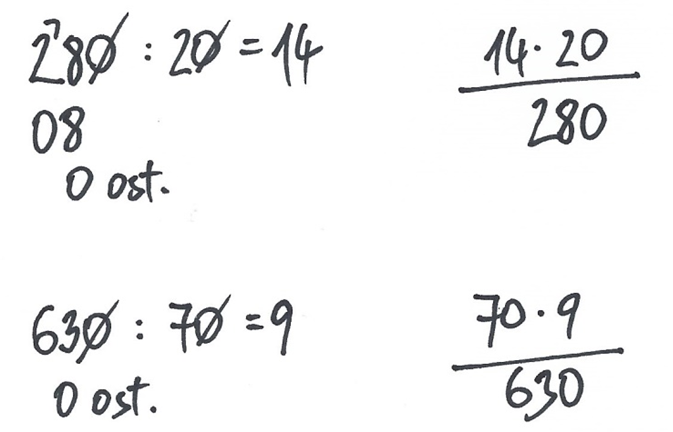 280 : 20 = 14
08
0 ost.
14 · 20
280
630 : 70 = 9
0 ost.
70 · 9
630